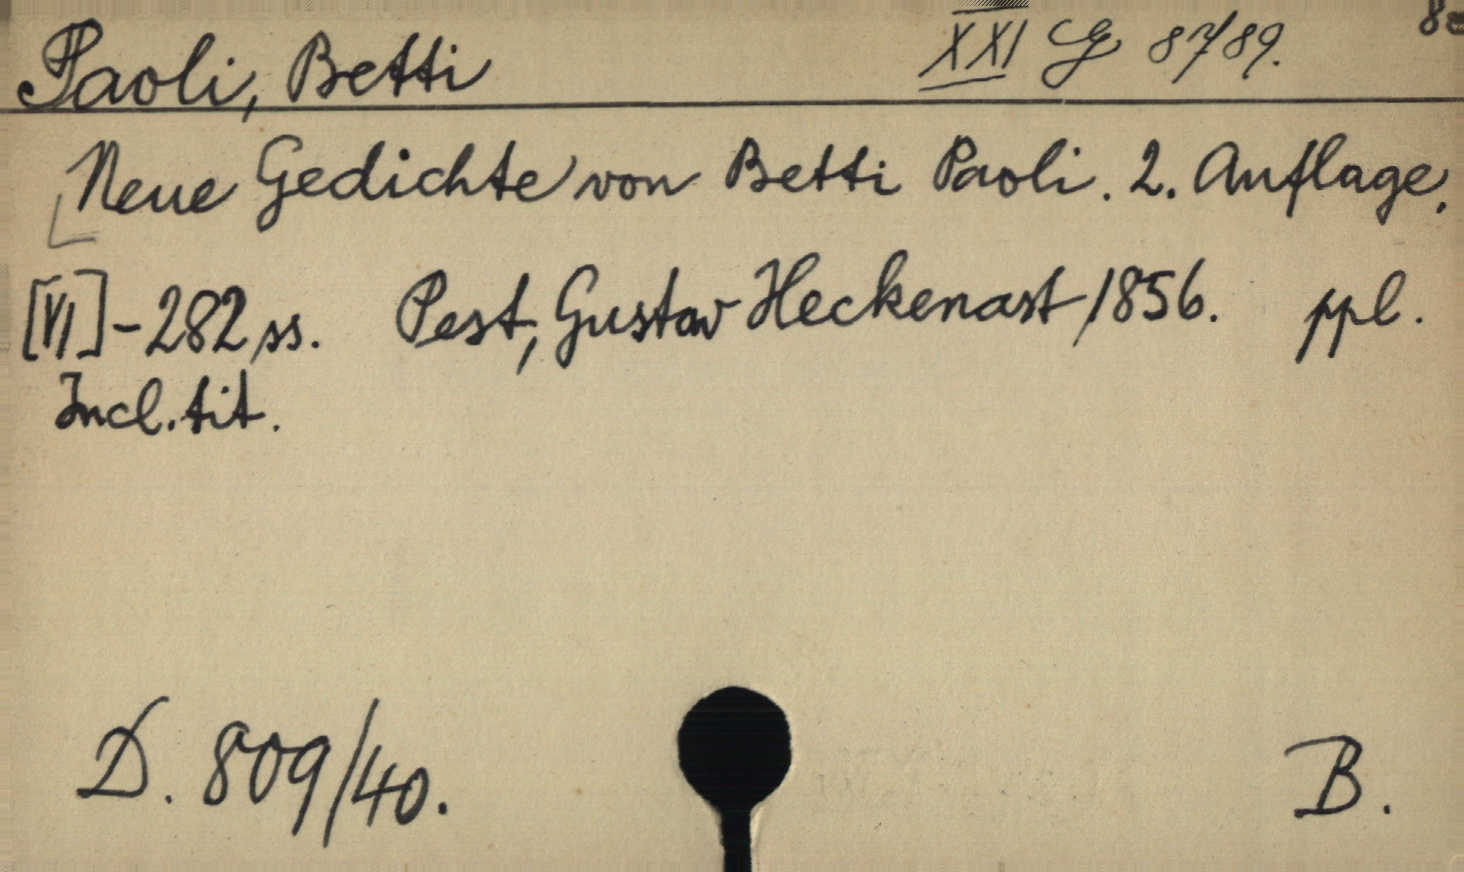 Paoli, Betti
XXI G 8789.
Neue Gedichte von Betti Paoli. 2. Auflage.
[VI]-282 ss. Pest, Gustav Heckenast 1856. ppl.
Incl. tit.
D. 809/40.
B.